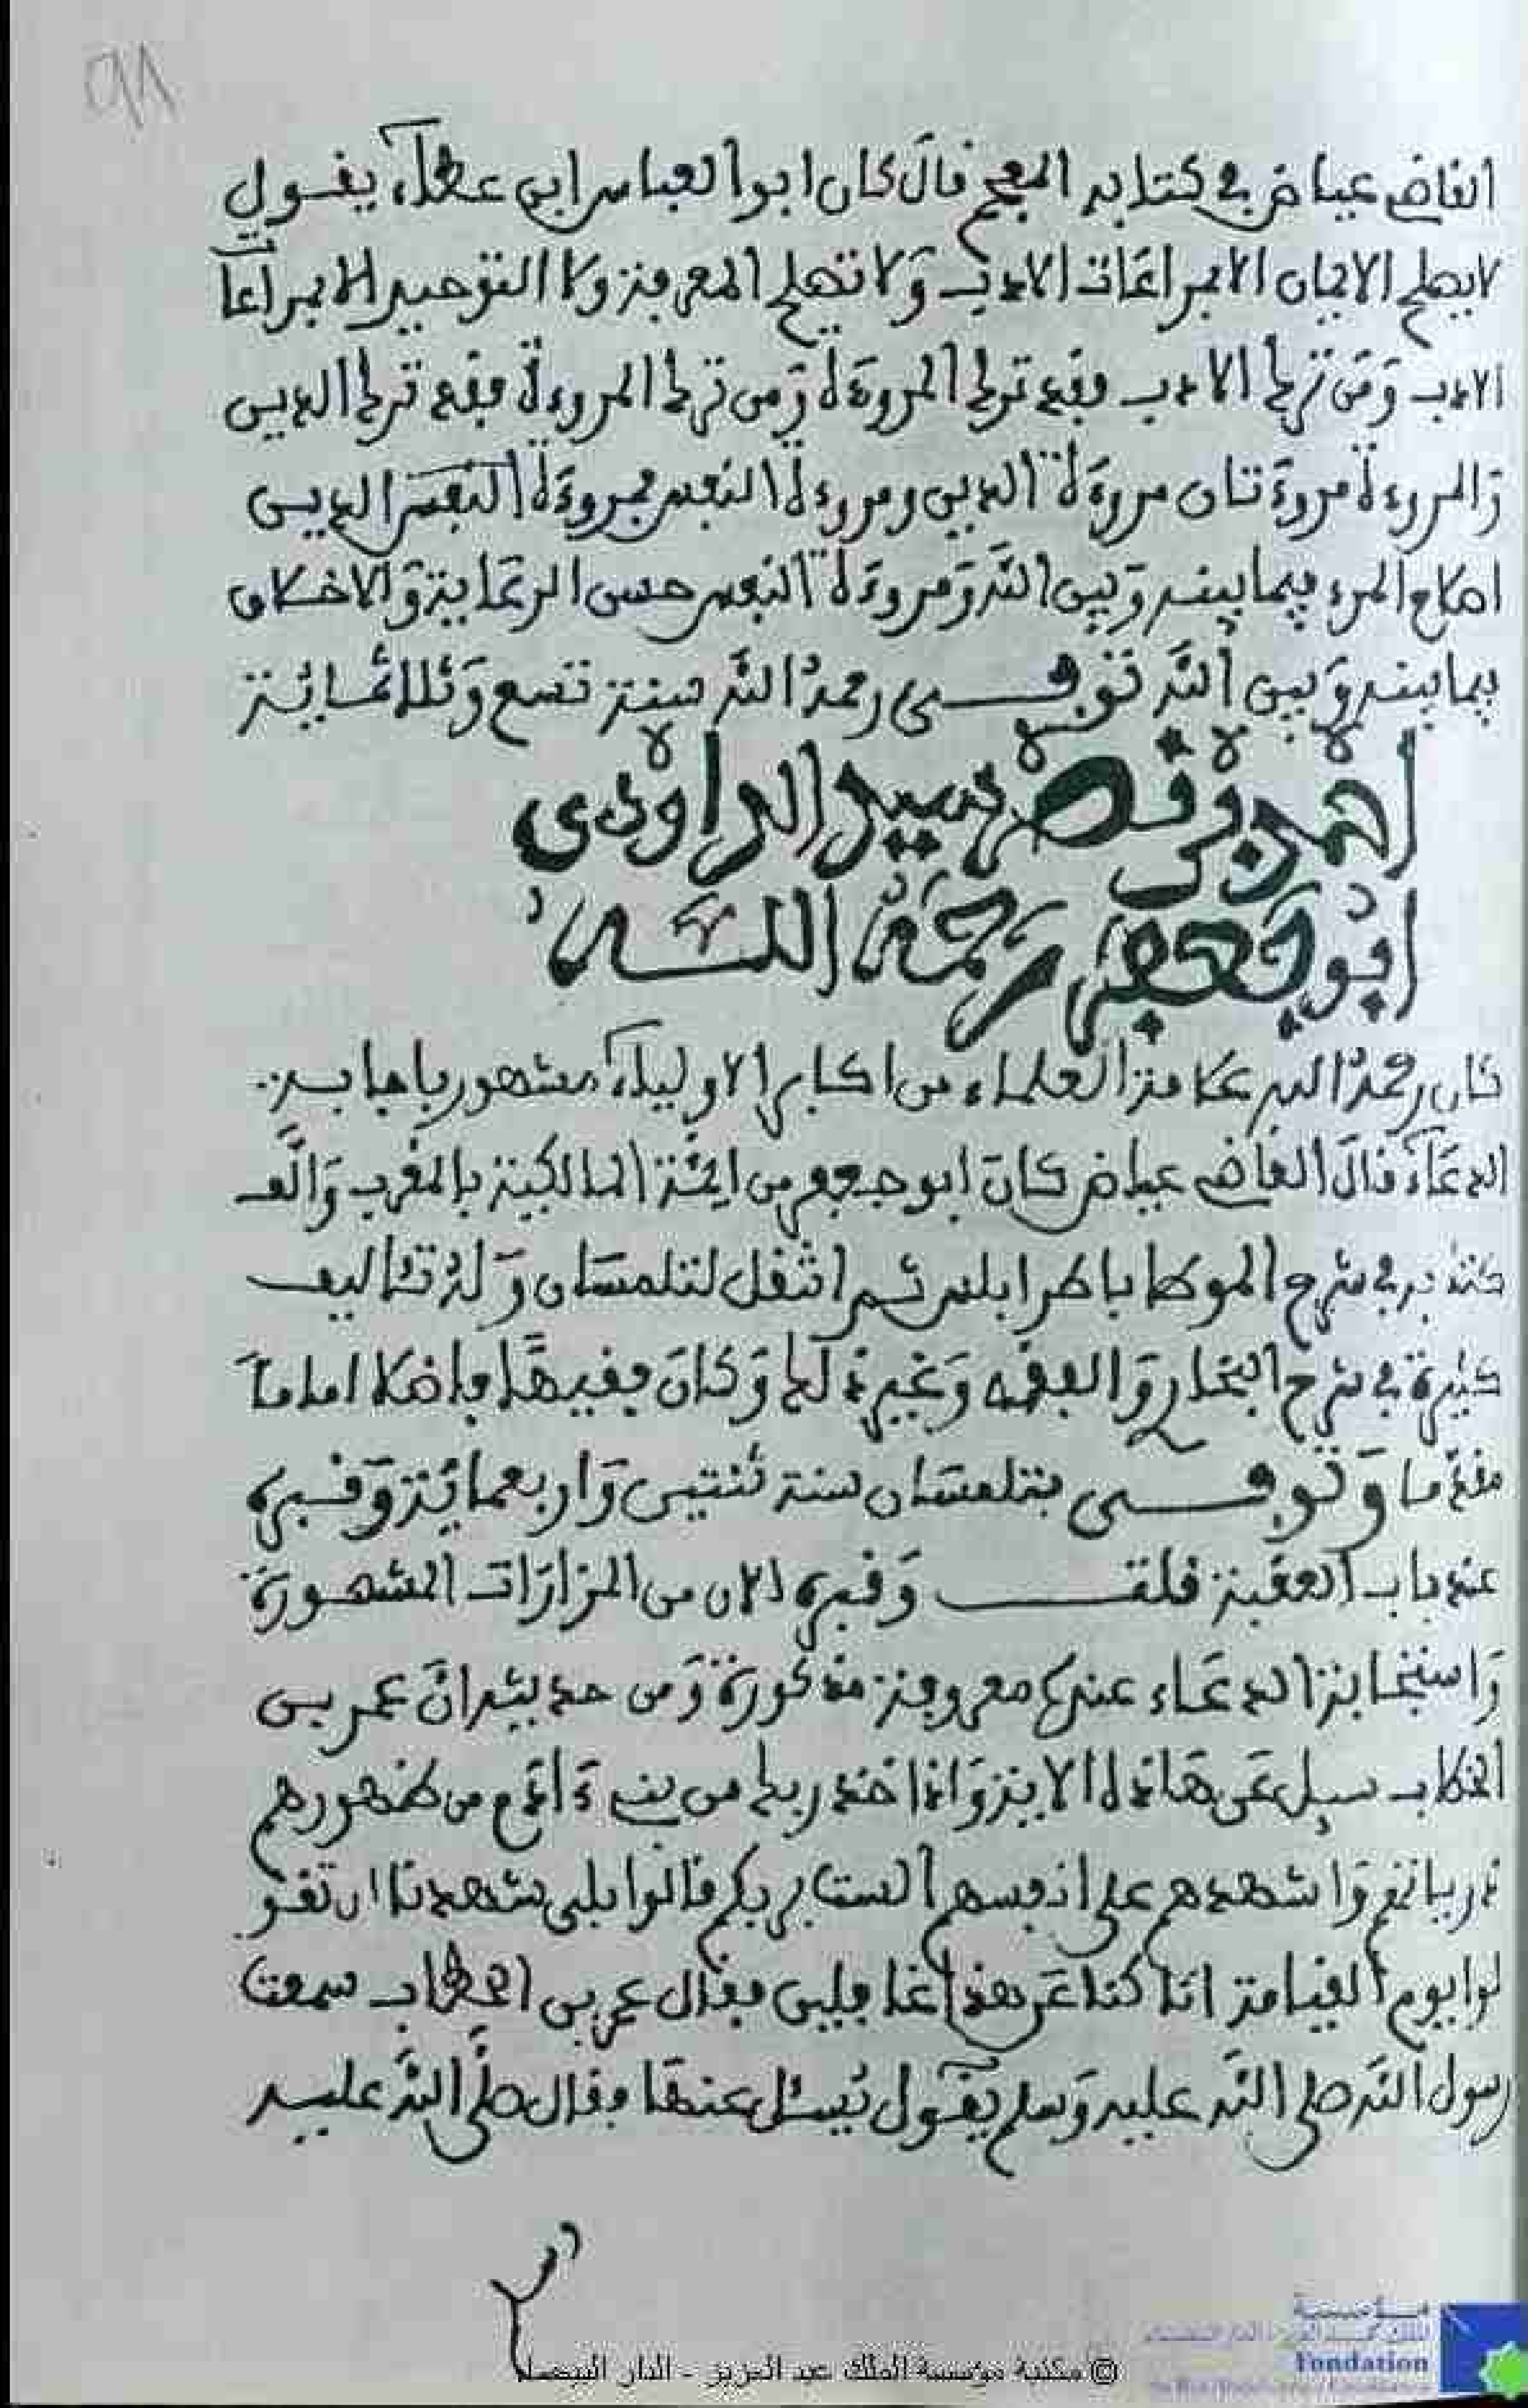 ٩٨
القاضي عياض في كتابه المعجم قال كان ابو العباس ابن عطاء يقول
لا يصلح الايمان الا بمراعات الادب ولا تصلح المعرفة ولا التوحيد الا بمراعا
الادب ومن ترك الادب فقد ترك المروءة ومن ترك المروءة فقد ترك الدين
والمروءة مروءتان مروءة الدين ومروءة النفس فمروءة النفس الدين
المرء فيما بينه وبين الله ومروءة النفس حسن الرعاية والاخلاص
فيما بينه وبين الله توفى رحمه الله سنة تسع وثلاثمائة
احمد بن نصر سيد الداودى
ابو جعفر رحمه الله
كان رحمه الله علامة العلماء من اكابر الاولياء مشهور باجابة
الدعاء قال القاضي عياض كان ابو جعفر من ائمة المالكية بالمغرب والف
كتابه في شرح الموطا باطرابلس ثم انتقل لتلمسان وله تئاليف
كثيرة في شرح البخار والفقه وغير ذلك وكان فقيها فاضلا اماما
مقدما وتوفى بتلمسان سنة ثنتين واربعمائة وقبره
عند باب العقبة قلت وقبره الان من المزارات المشهورة
واستجابة الدعاء عنده معروفة مذكورة ومن حديثه ان عمر بن
الخطاب سيل عن هاذه الاية واذا اخذ ربك من بنى ءادم من ظهورهم
ذرياتهم واشهدهم على انفسهم الست بربكم قالوا بلى شهدنا ان تقو
لوا يوم القيامة انا كنا عن هذا غافلين فقال عمر بن الخطاب سمعت
رسول الله صلى الله عليه وسلم يقول يسئل عنها فقال صلى الله عليه
© مكتبة مؤسسة الملك عبد العزيز - الدار البيضاء
مؤسسة
Fondation